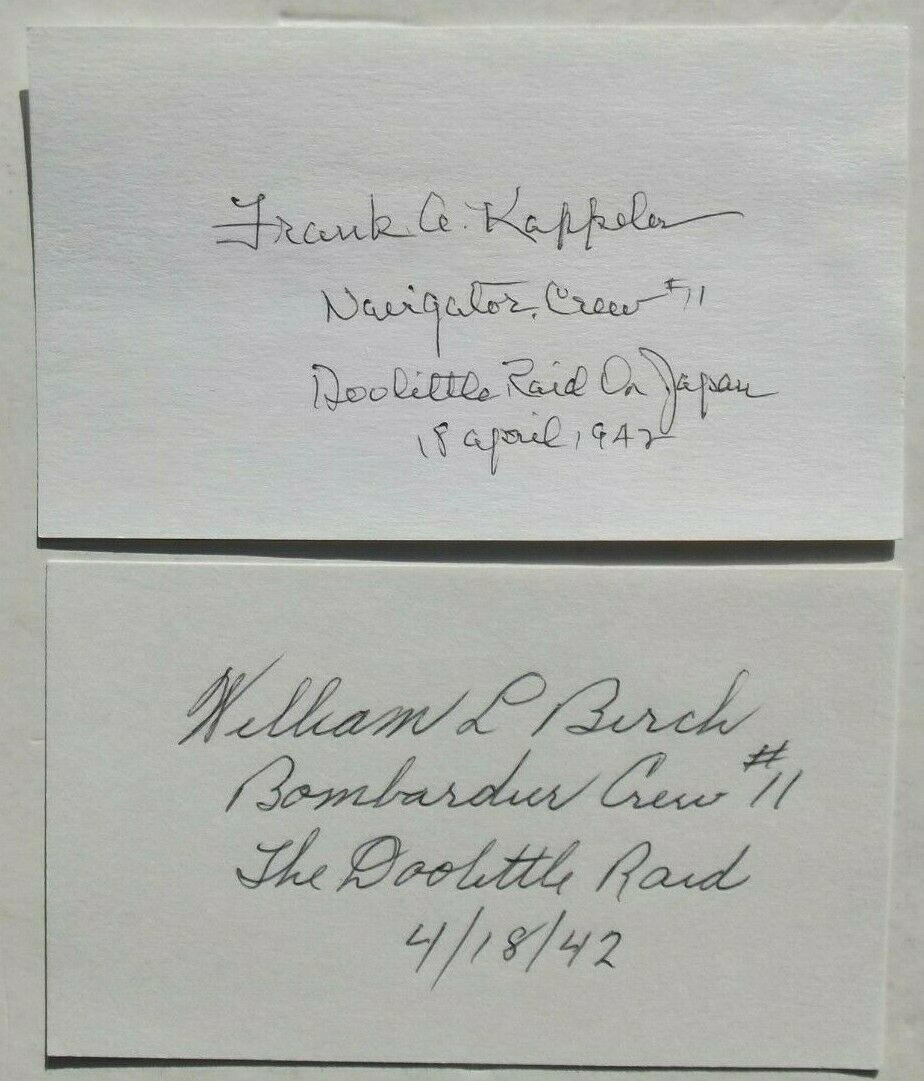 Frank A. Kappeler
Navigator, Crew #11
Doolittle Raid On Japan
18 april, 1942
William L Birch
Bombardier Crew #11
The Doolittle Raid
4/18/42